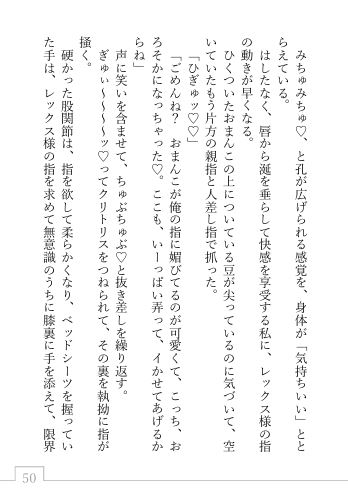 みちゅみちゅ♡、と孔が広げられる感覚を、身体が「気持ちいい」とと
らえている。
はしたなく、唇から涎を垂らして快感を享受する私に、レックス様の指
の動きが早くなる。
ひくついたおまんこの上についている豆が尖っているのに気づいて、空
いていたもう片方の親指と人差し指で抓った。
「ひぎゅッ♡♡」
「ごめんね？　おまんこが俺の指に媚びてるのが可愛くて、こっち、お
ろそかになっちゃった♡。ここも、いーっぱい弄って、イかせてあげるか
らね」
声に笑いを含ませて、ちゅぶちゅぶ♡と抜き差しを繰り返す。
ぎゅぃ～～～～ッ♡ってクリトリスをつねられて、その裏を執拗に指が
掻く。
硬かった股関節は、指を欲して柔らかくなり、ベッドシーツを握ってい
た手は、レックス様の指を求めて無意識のうちに膝裏に手を添えて、限界
50